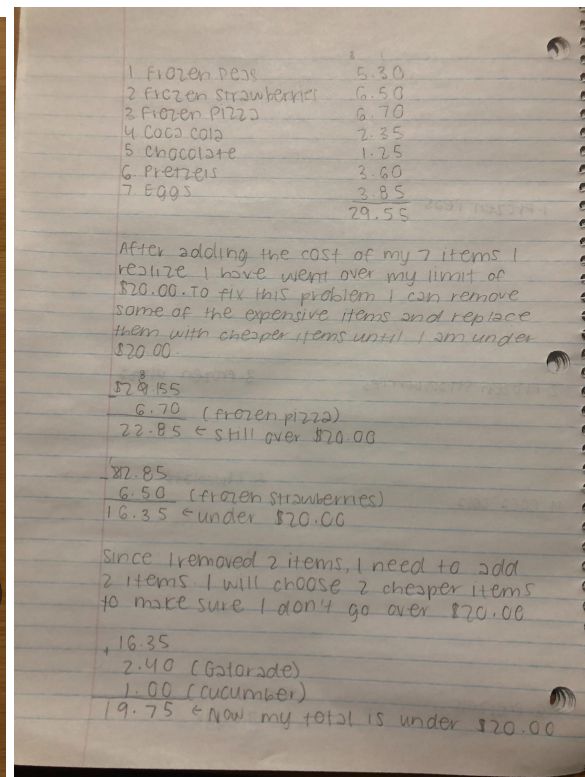 1 Frozen peas 5.30
2 Frozen strawberries 6.50
3 Frozen Pizza 6.70
4 Coca cola 2.35
5 Chocolate 1.25
6. Pretzels 3.60
7 Eggs 3.85
29.55
After adding the cost of my 7 items I
realize I have went over my limit of
$20.00. To fix this problem I can remove
some of the expensive items and replace
them with cheaper items until I am under
$20.00.
8
$29.155
6.70 (frozen pizza)
22.85 ← still over $20.00
22.85
6.50 (frozen strawberries)
16.35 ← under $20.00
Since I removed 2 items, I need to add
2 items I will choose 2 cheaper items
to make sure I don't go over $20.00
+16.35
2.40 (Gatorade)
1.00 (cucumber)
19.75 ← Now my total is under $20.00